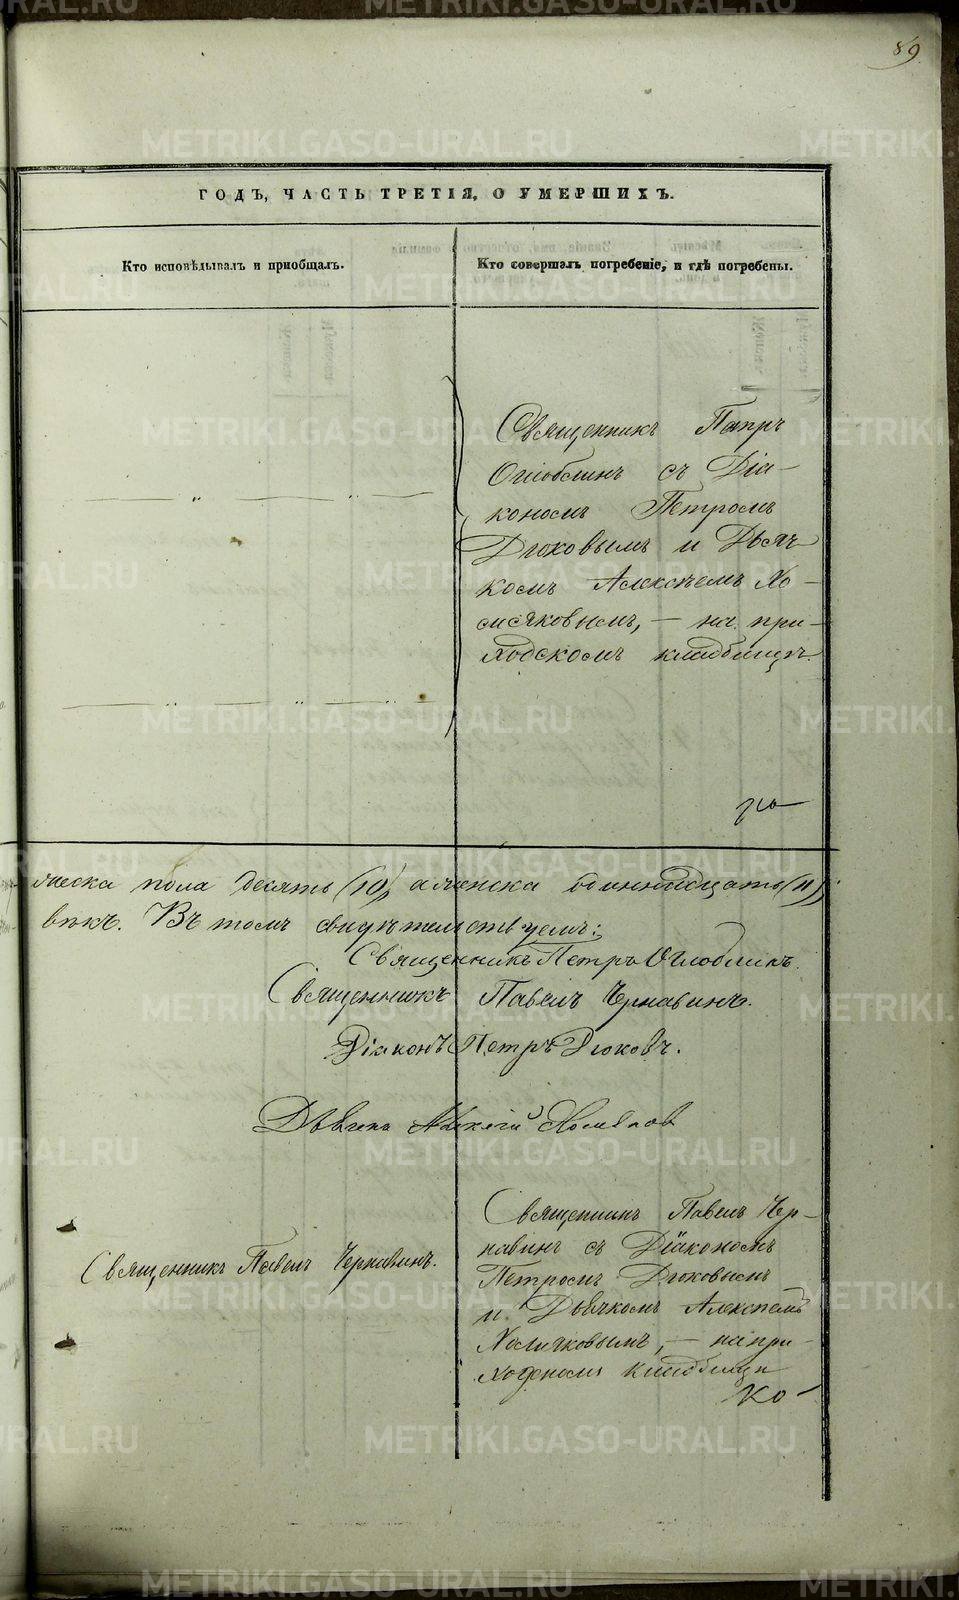 89
ГОДЪ, ЧАСТЬ ТРЕТІЯ, О УМЕРШИХЪ.
Кто исповѣдывалъ и пріобщалъ.
Кто совершалъ погребеніе, и гдѣ погребены.
Священникъ Петръ
Оглоблинъ съ Діа-
кономъ Петромъ
Дюковымъ и Дьяч-
комъ Алексѣемъ Хо-
мяковымъ, – на при-
ходскомъ кладбищѣ.
мужеска пола десять (10), а женска одиннадцать (11)
вѣкъ. Въ томъ свидѣтельствуемъ:
Священникъ Петръ Оглоблинъ.
Священникъ Павелъ Чернавинъ.
Діаконъ Петръ Дюковъ.
Дьячекъ Алексій Хомяков
Священникъ Павелъ Чернавинъ.
Священникъ Павелъ Чер-
навинъ съ Діакономъ
Петромъ Дюковымъ
и Дьячкомъ Алексѣемъ
Хомяковымъ, – на при-
ходскомъ кладбищѣ
METRIKI.GASO-URAL.RU